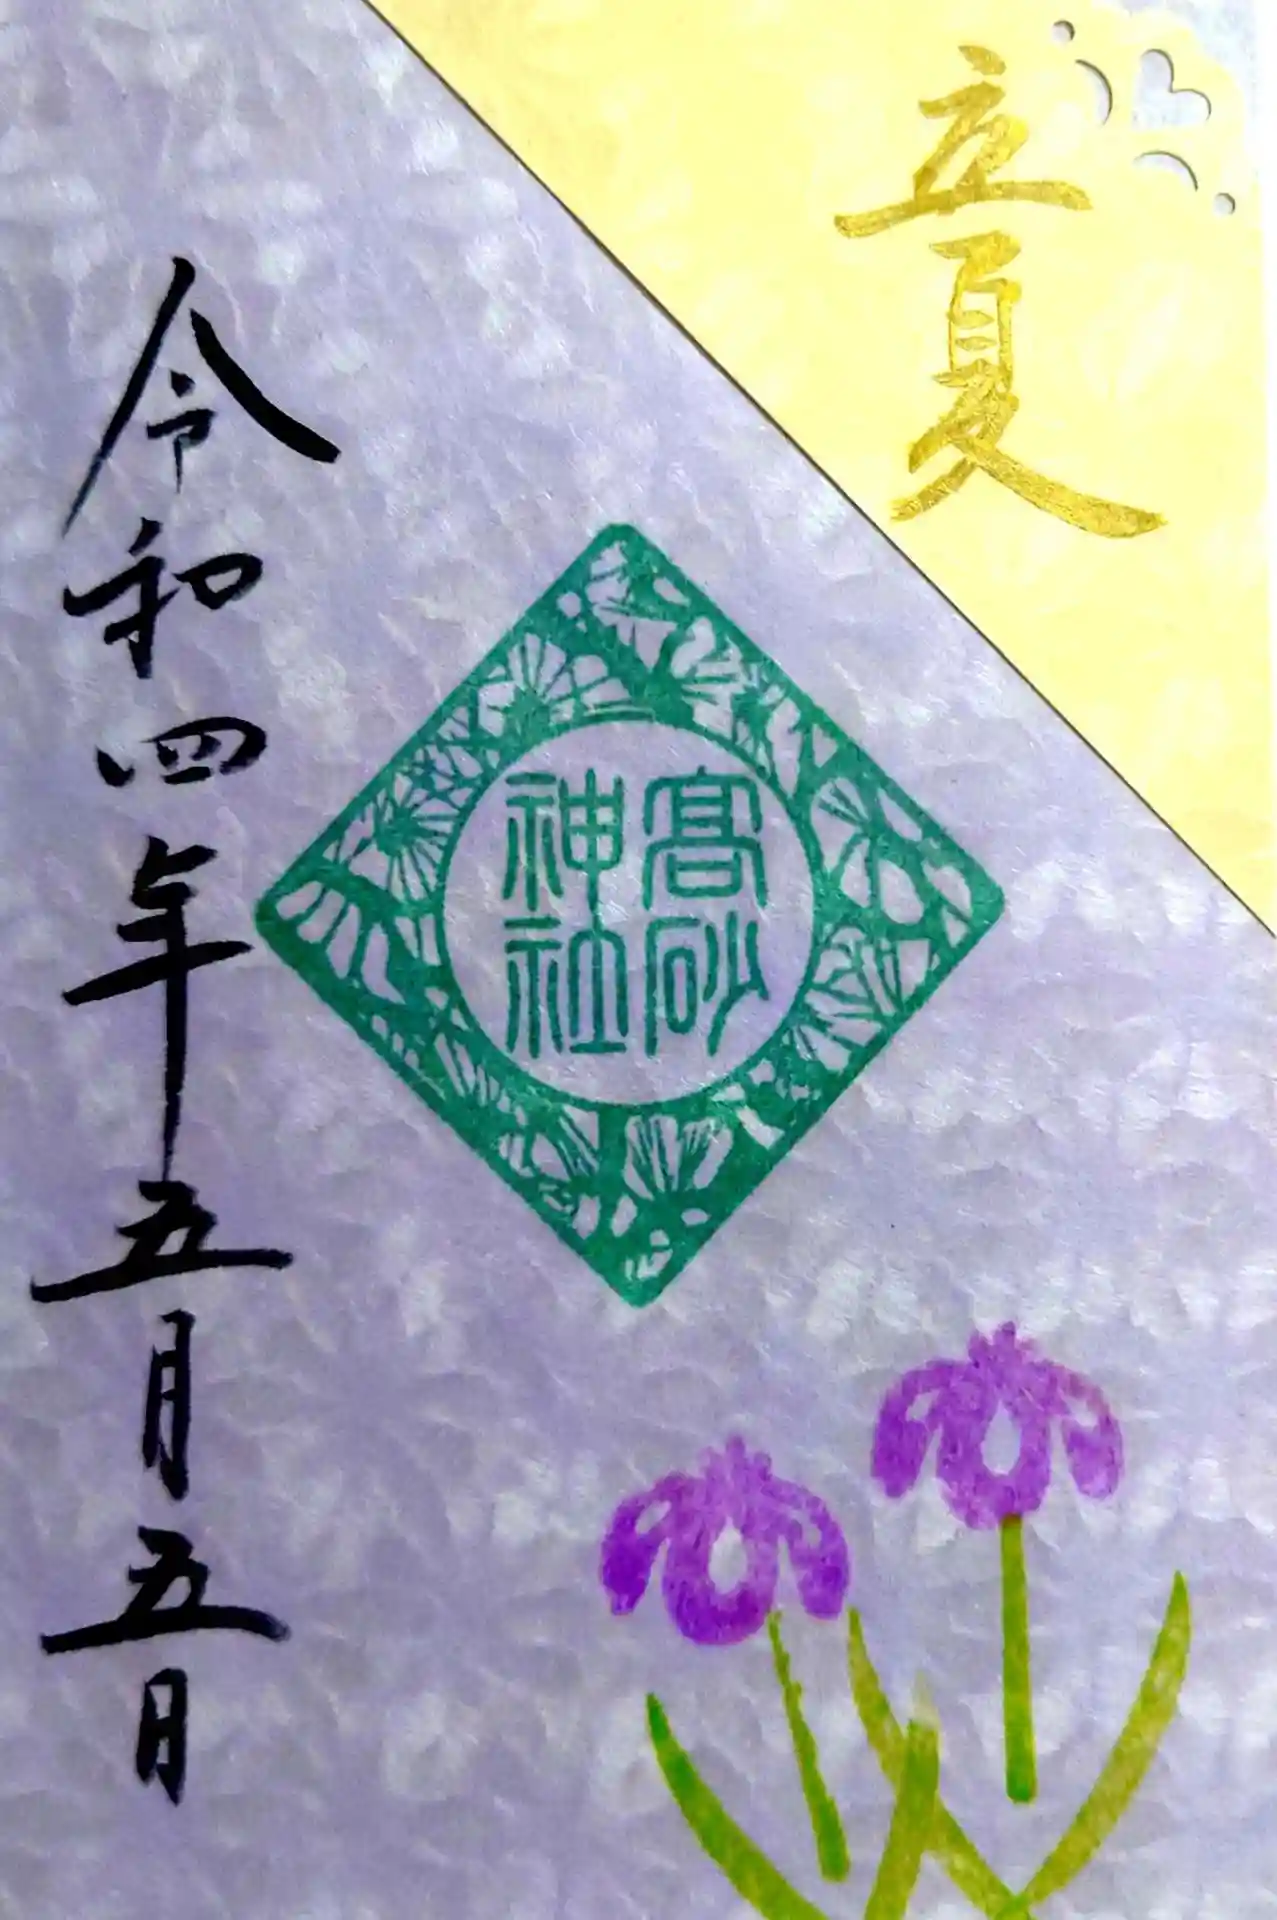 立夏
髙砂
神社
令和四年五月五日